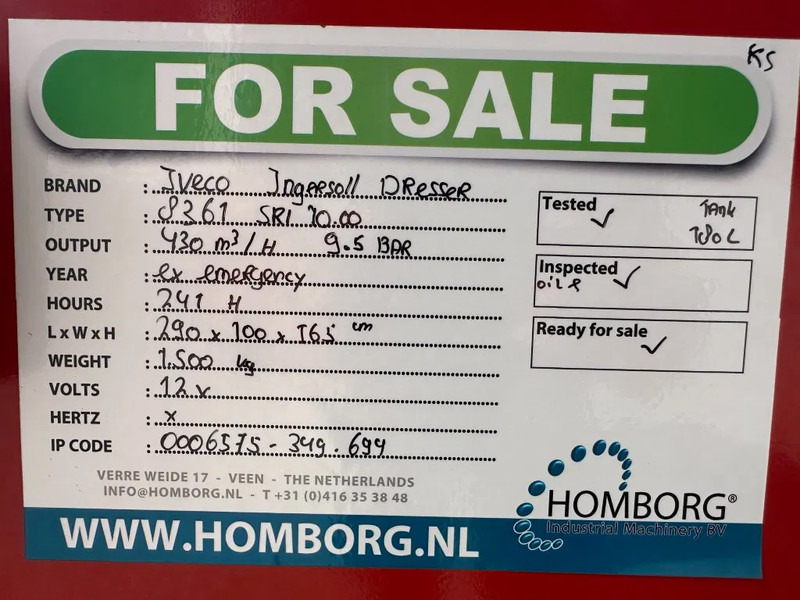 KS
FOR SALE
BRAND : Iveco Ingersoll Dresser
TYPE : 8361 SRI 10.00
OUTPUT : 430 m³/H 9.5 BAR
YEAR : ex emergency
HOURS : 241 H
L x W x H : 290 x 100 x 165 cm
WEIGHT : 1.500 kg
VOLTS : 12 v
HERTZ : x
IP CODE : 0006575 - 349 . 694
Tested ✓ TANK
180 L
Inspected ✓
Ready for sale ✓
VERRE WEIDE 17 - VEEN - THE NETHERLANDS
INFO@HOMBORG.NL - T +31 (0)416 35 38 48
HOMBORG®
Industrial Machinery BV
WWW.HOMBORG.NL